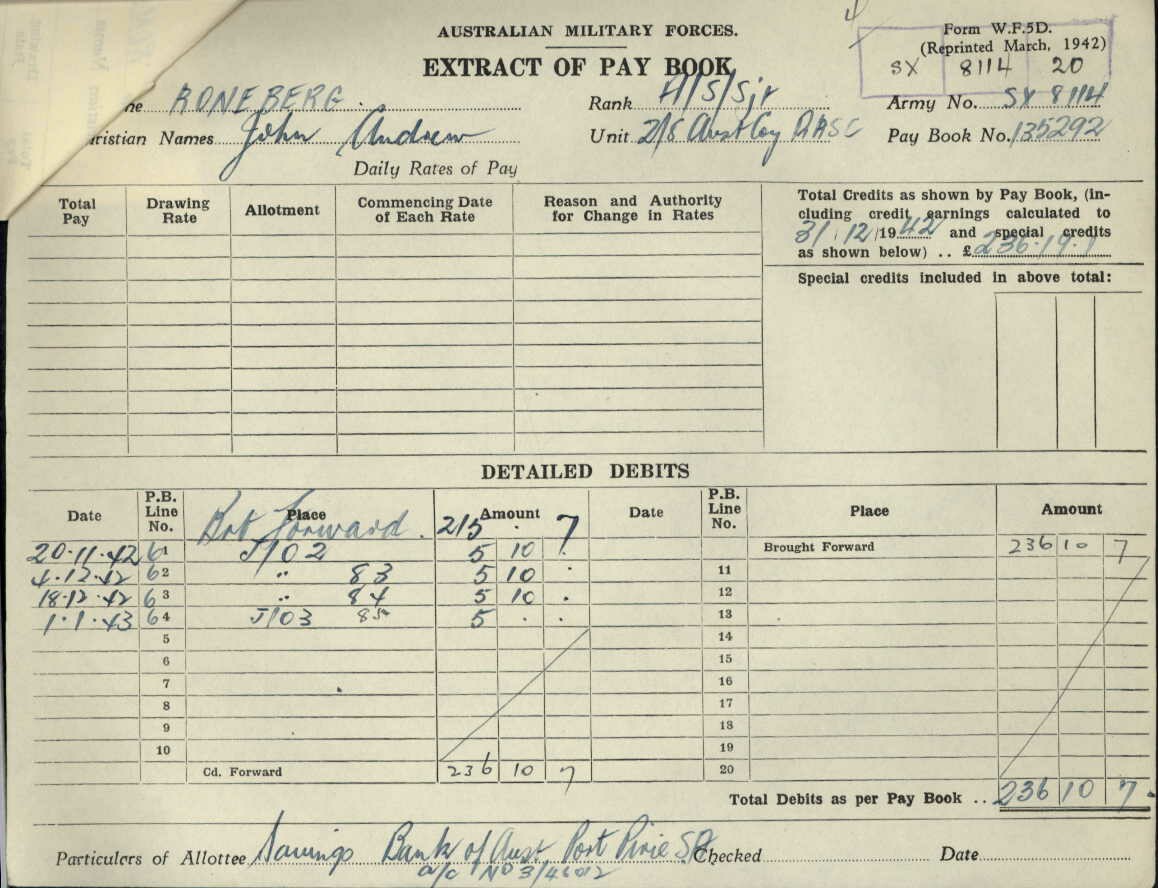 AUSTRALIAN MILITARY FORCES.
Form W.F.5D.
(Reprinted March, 1942)
EXTRACT OF PAY BOOK
SX 8114 20
me RONEBERG Rank A/S/Sjt Army No. SX 8114
hristian Names John Andrew Unit 2/8 Aust Coy AASC Pay Book No. 135292
Daily Rates of Pay
Total Pay
Drawing Rate
Allotment
Commencing Date of Each Rate
Reason and Authority for Change in Rates
Total Credits as shown by Pay Book, (in-
cluding credit earnings calculated to
31/12/1942 and special credits
as shown below) .. £236.19.1
Special credits included in above total:
DETAILED DEBITS
Date P.B. Line No. Place Amount Date P.B. Line No. Place Amount
Brt Forward. 215 . 7
20.11.42 6 1 J102 5 10 . Brought Forward 236 10 7
4.12.42 6 2 " 83 5 10 . 11
18.12.42 6 3 " 84 5 10 . 12
1.1.43 6 4 J103 85 5 . . 13
5 14
6 15
7 16
8 17
9 18
10 19
Cd. Forward 236 10 7 20
Total Debits as per Pay Book .. 236 10 7
Particulars of Allottee Savings Bank of Aust Port Pirie SA Checked Date
a/c No 3/46012